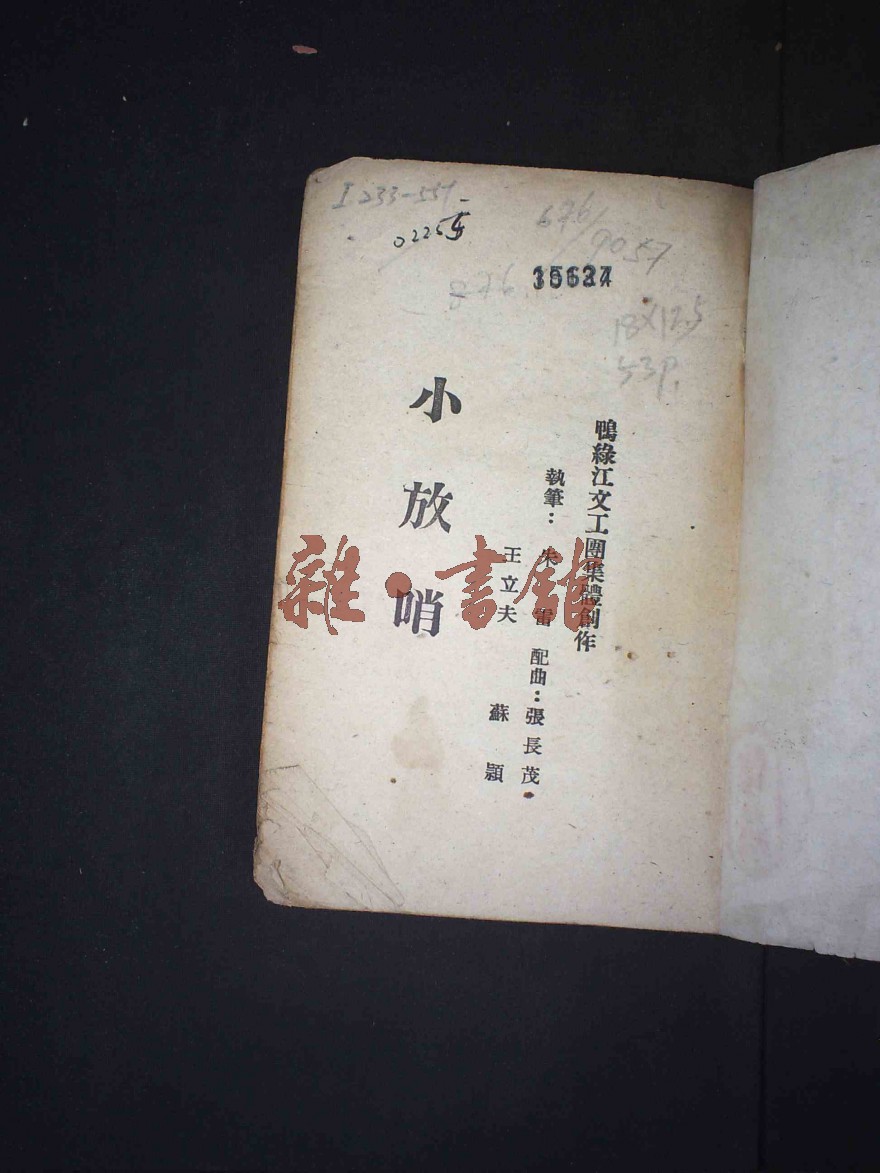 I 233-557
02255
676/9057
876
18×12.5
53P.
鴨綠江文工團集體創作
執筆：朱雷
王立夫
配曲：張長茂
蘇頴
小放哨
雜·書館